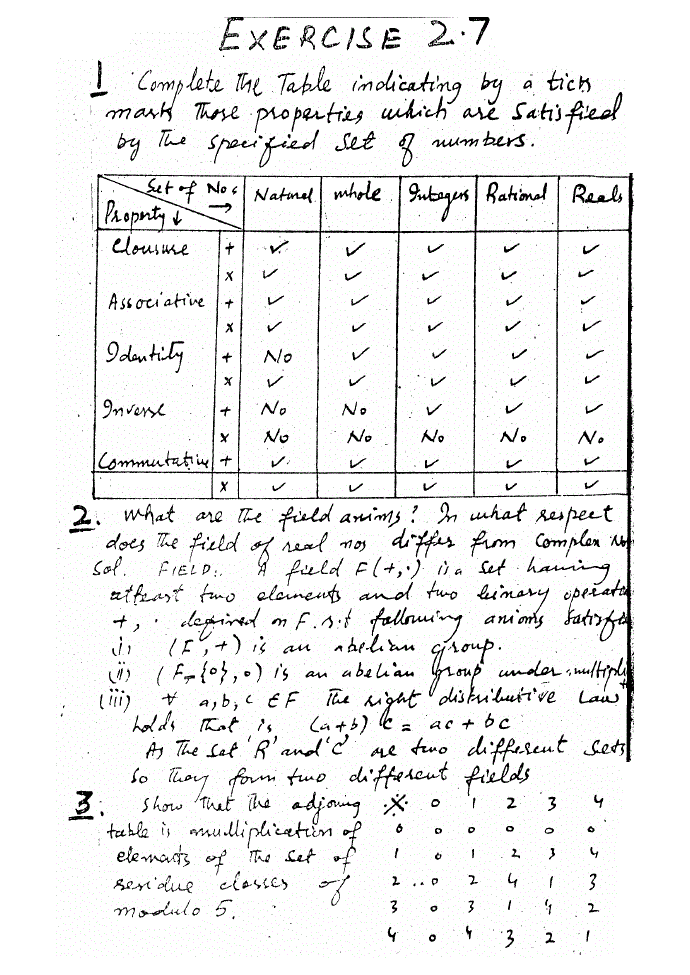 EXERCISE 2.7
1 Complete The Table indicating by a tick
mark those properties which are satisfied
by The specified set of numbers.
Set of Nos → Natural whole Integers Rational Reals
Property ↓
Clousure + ✓ ✓ ✓ ✓ ✓
x ✓ ✓ ✓ ✓ ✓
Associative + ✓ ✓ ✓ ✓ ✓
x ✓ ✓ ✓ ✓ ✓
Identity + No ✓ ✓ ✓ ✓
x ✓ ✓ ✓ ✓ ✓
Inverse + No No ✓ ✓ ✓
x No No No No No
Commutative + ✓ ✓ ✓ ✓ ✓
x ✓ ✓ ✓ ✓ ✓
2. What are the field axioms? In what respect
does the field of real nos differ from Complex No
Sol. FIELD:. A field F(+,·) is a set having
atleast two elements and two binary operatio
+, · defined on F. s.t following axioms satisfie
i) (F,+) is an abelian group.
(ii) (F-{0},·) is an abelian group under multipli
(iii) ∀ a,b,c ∈ F The right distributive Law
holds that is (a+b) c = ac + bc
As The set 'R' and 'C' are two different sets
So they form two different fields
3. Show that the adjoing
table is multiplication of
elements of the set of
residue classes of
modulo 5.
× 0 1 2 3 4
0 0 0 0 0 0
1 0 1 2 3 4
2 ..0 2 4 1 3
3 0 3 1 4 2
4 0 4 3 2 1